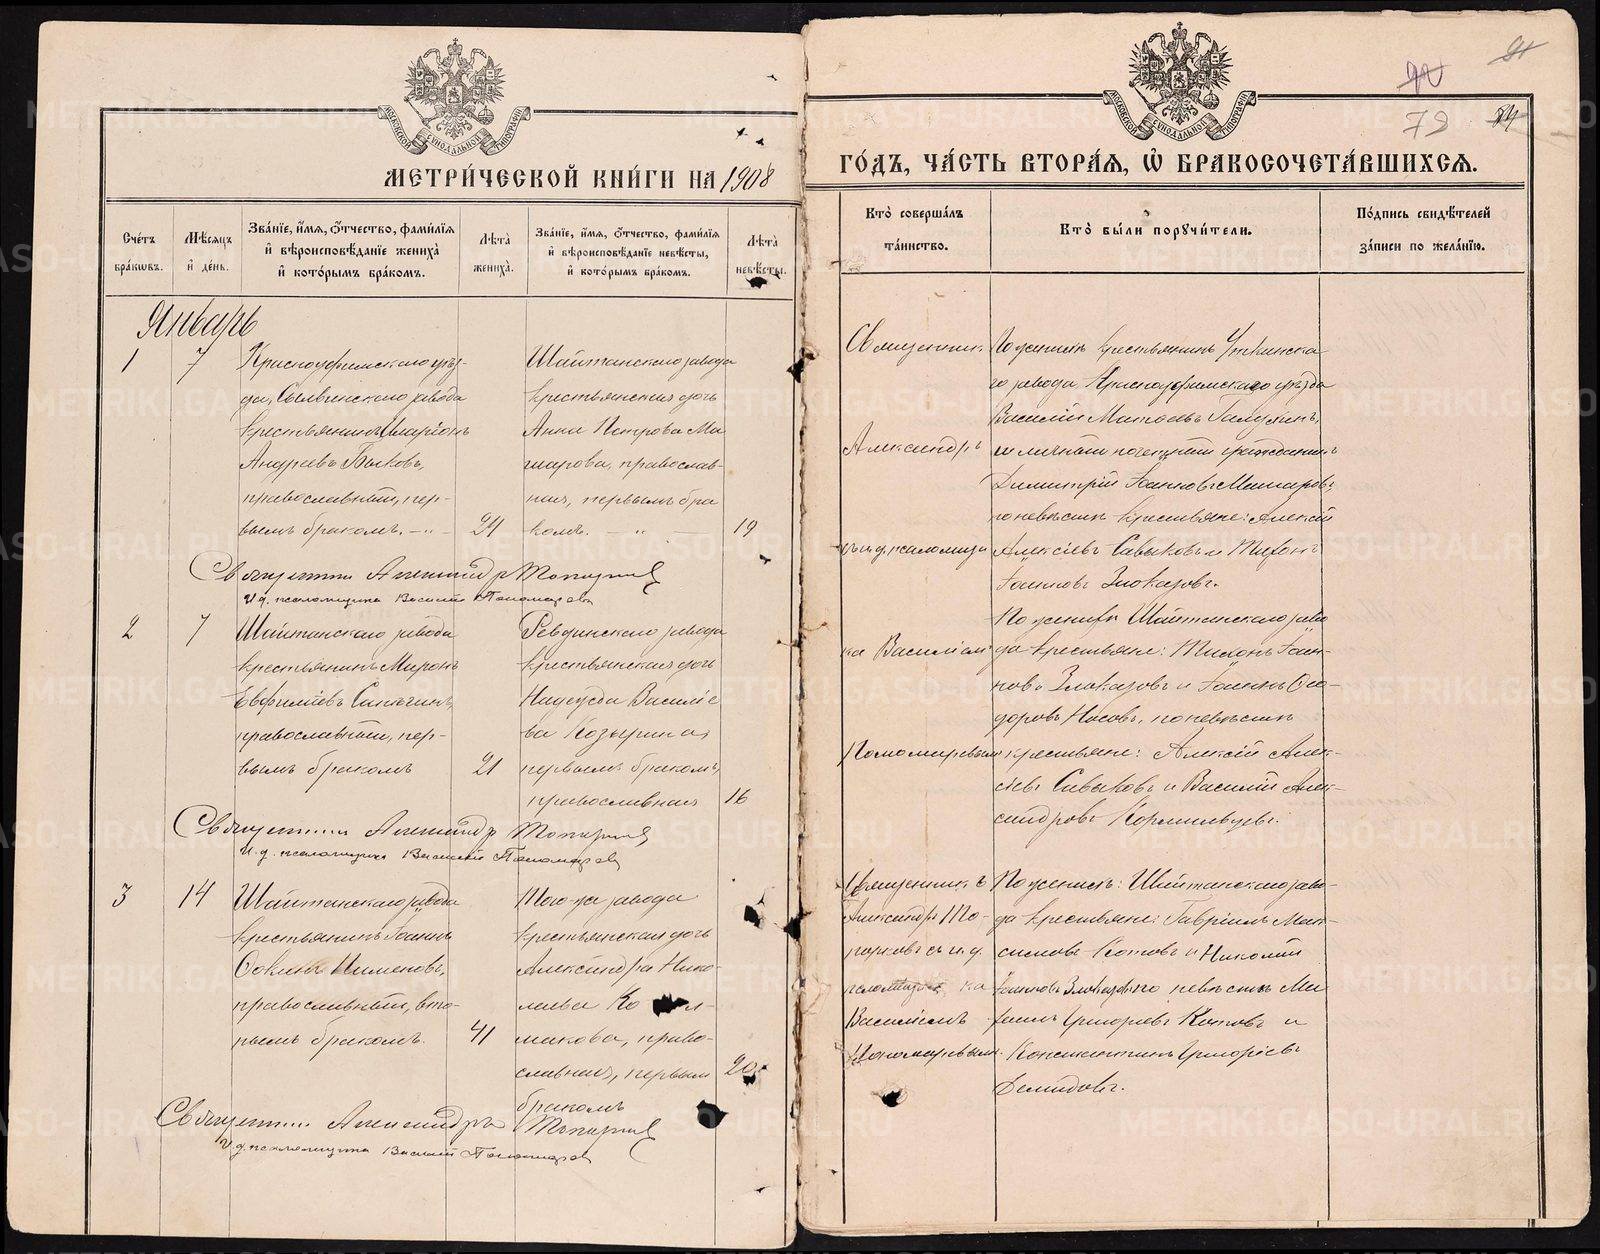 МЕТРИ́ЧЕСКОЙ КНИ́ГИ НА 1908
Сче́тъ бра́кѡвъ.
Мѣ́сяцъ и҆ де́нь.
Зва́нїе, и҆́мя, ѻ҆́тчество, фами́лїя и҆ вѣроисповѣ́данїе жениха̀ и҆ кото́рымъ бра́комъ.
Лѣ́та жениха̀.
Зва́нїе, и҆́мя, ѻ҆́тчество, фами́лїя и҆ вѣроисповѣ́данїе невѣ́сты, и҆ кото́рымъ бра́комъ.
Лѣ́та невѣ́сты.
Январь
1
7
Красноуфимскаго уѣз-
да, Сылвинскаго завода
крестьянинъ Иларіонъ
Андреевъ Быковъ,
православный, пер-
вымъ бракомъ.
24
Шайтанскаго завода
крестьянская дочь
Анна Петрова Ма
шарова, православ-
ная, первымъ бра
комъ.
19
Священникъ Александръ Топорковъ
И.д. псаломщика Василій Пономаревъ
2
7
Шайтанскаго завода
крестьянинъ Миронъ
Евфиміевъ
православный, пер-
вымъ бракомъ
21
Ревдинскаго завода
крестьянская дочь
Надежда Василіе
ва Козырина,
первымъ бракомъ,
православная
16
Священникъ Александръ Топорковъ
И.д. псаломщика Василій Пономаревъ
3
14
Шайтанскаго завода
крестьянинъ Іоаннъ
Ѳокинъ Пименовъ,
православный, вто-
рымъ бракомъ.
41
Того-же завода
крестьянская дочь
Александра Нико-
лаева
макова, право-
славная, первым
бракомъ
20
Священникъ Александръ Топорковъ
И.д. псаломщика Василій Пономаревъ
79
84
ГО́ДЪ, ЧА́СТЬ ВТОРА́Я, Ѡ҆ БРАКОСОЧЕТА́ВШИХСЯ.
Кто̀ соверша́лъ та́инство.
Кто̀ бы́ли порꙋчи́тели.
По́дпись свидѣ́телей за́писи по жела́нїю.
Священникъ
Александръ
съ и.д. псаломщи
ка Василіем
Пономаревым
По женихѣ крестьянинъ Уткинска
го завода Красноуфимскаго уѣзда
Василій Матѳеевъ Галушинъ,
и личный почетный гражданинъ
Димитрій Іоанновъ Машаровъ;
по невѣстѣ крестьяне: Алексій
Алексіевъ Савыковъ и Тихонъ
Іоанновъ Злоказовъ.
По женихѣ Шайтанскаго заво
да крестьяне: Тихонъ Іоан-
новъ Злоказовъ и Іоаннъ Ѳео-
доровъ Носовъ, по невѣстѣ
крестьяне: Алексій Алек-
сіевъ Савыковъ и Василій Алек-
сандровъ Кормильцевъ.
Священникъ
Александръ То-
порковъ съ и.д.
псаломщика
Василіемъ
Пономаревым.
По женихѣ: Шайтанскаго заво-
да крестьяне: Гавріилъ Мак-
симовъ Котовъ и Николай
Іоанновъ Злоказовъ по невѣстѣ Ми
хаилъ Григорьевъ Котовъ и
Константинъ Григоріевъ
Демидовъ.